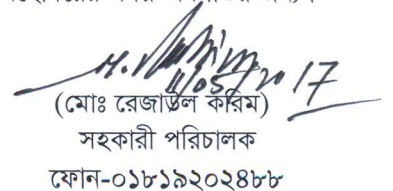 11/05/2017
(মোঃ রেজাউল করিম)
সহকারী পরিচালক
ফোন-০১৮১৯২০২৪৮৮